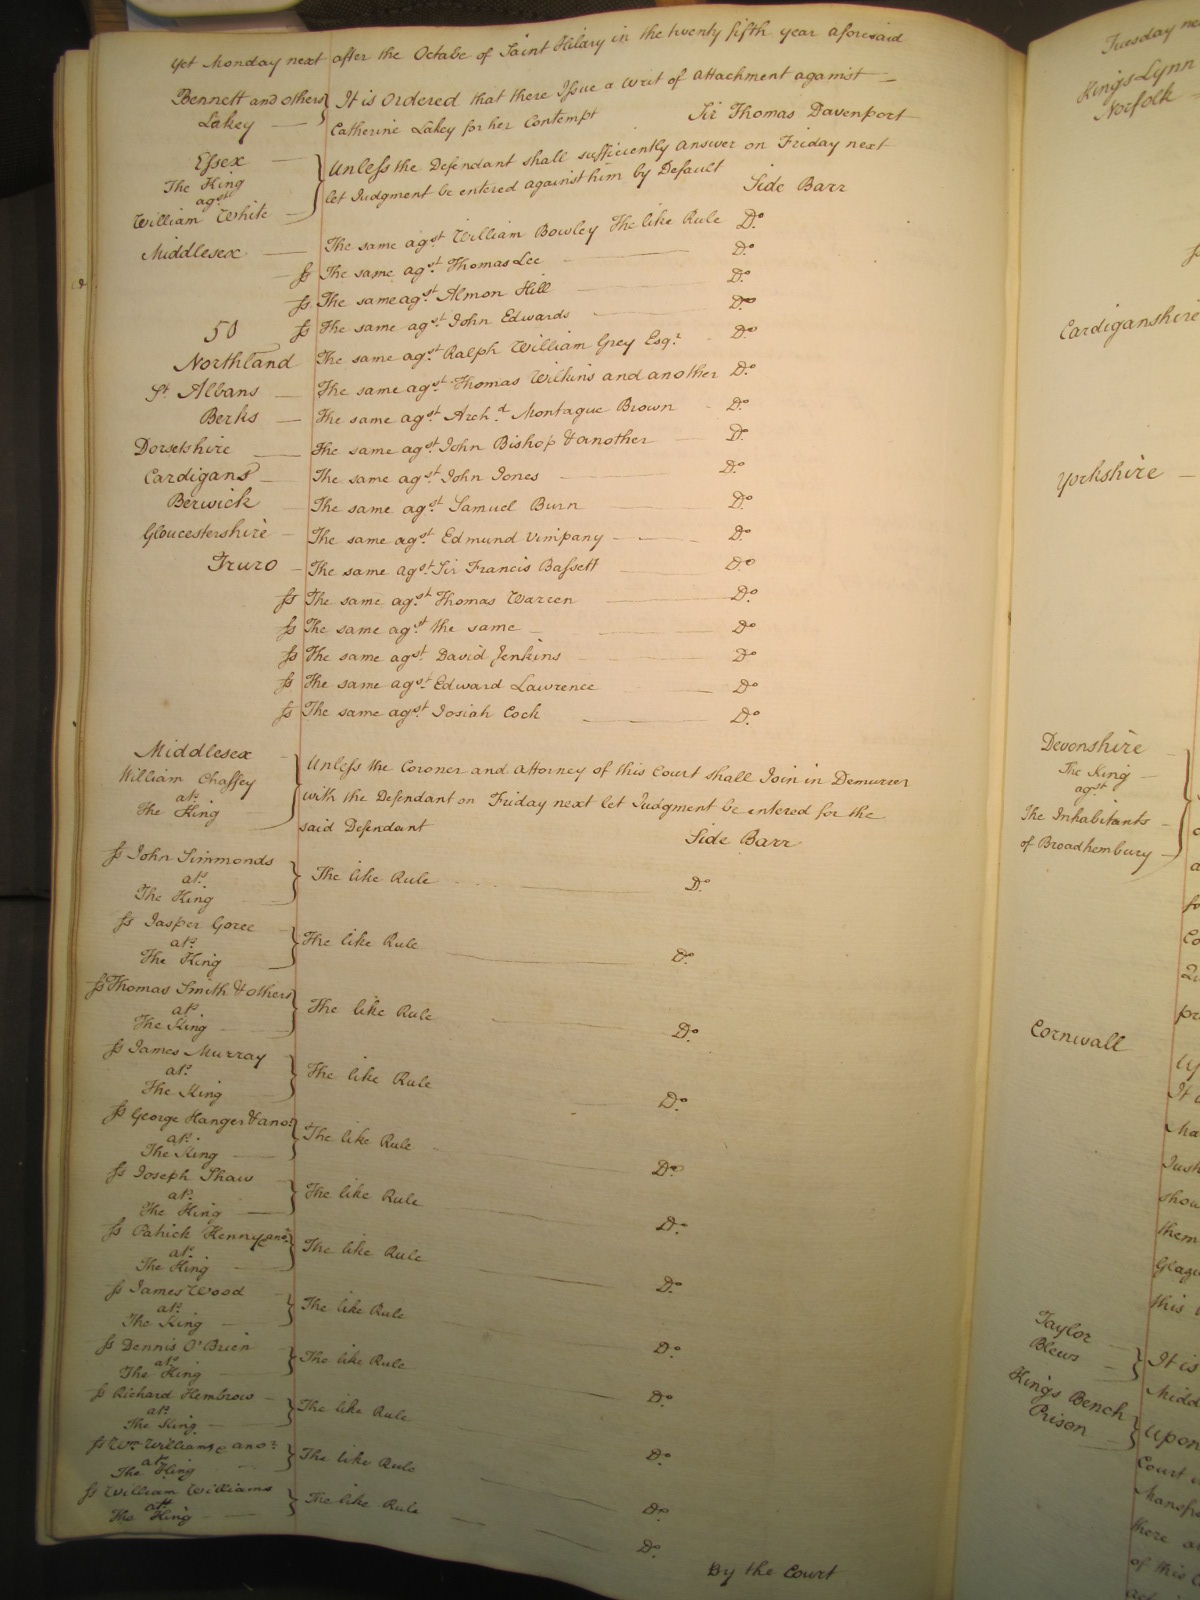 Yet Monday next after the Octabe of Saint Hilary in the twenty fifth year aforesaid
Bennett and others It is Ordered that there Issue a writ of Attachment against
Lakey Catherine Lakey for her Contempt Sir Thomas Davenport
Essex Unless the Defendant shall sufficiently answer on Friday next
The King let Judgment be entered against him by Default
agst Side Barr
William White
Middlesex The same agst William Bowley The like Rule Do
ss The same agst Thomas Lee Do
ss The same agst Almon Hill Do
50 ss The same agst John Edwards Do
Northland The same agst Ralph William Grey Esqr Do
St Albans The same agst Thomas Wilkins and another Do
Berks The same agst Archd Montague Brown Do
Dorsetshire The same agst John Bishop & another Do
Cardigans The same agst John Jones Do
Berwick The same agst Samuel Burn Do
Gloucestershire The same agst Edmund Vimpany Do
Truro The same agst Sir Francis Bassett Do
ss The same agst Thomas Warren Do
ss The same agst the same Do
ss The same agst David Jenkins Do
ss The same agst Edward Lawrence Do
ss The same agst Josiah Cock Do
Middlesex
William Chaffey Unless the Coroner and Attorney of this Court shall Join in Demurrer
ats with the Defendant on Friday next let Judgment be entered for the
The King said Defendant Side Barr
ss John Simmonds
ats The like Rule Do
The King
ss Jasper Goree
ats The like Rule Do
The King
ss Thomas Smith & others
ats The like Rule Do
The King
ss James Murray
ats The like Rule Do
The King
ss George Hanger & anor
ats The like Rule Do
The King
ss Joseph Shaw
ats The like Rule Do
The King
ss Patrick Kenny & anor
ats The like Rule Do
The King
ss James Wood
ats The like Rule Do
The King
ss Dennis O'Brien
ats The like Rule Do
The King
ss Richard Hembrow
ats The like Rule Do
The King
ss Wm Williams & anor
ats The like Rule Do
The King
ss William Williams
ats The like Rule Do
The King
By the Court
Tuesday
Kings Lynn
Norfolk
Cardiganshire
Yorkshire
Devonshire
The King
agst
The Inhabitants
of Broadhembury
Cornwall
Taylor
Blews
It is
Kings Bench
Prison
Upon
Court
there
of this